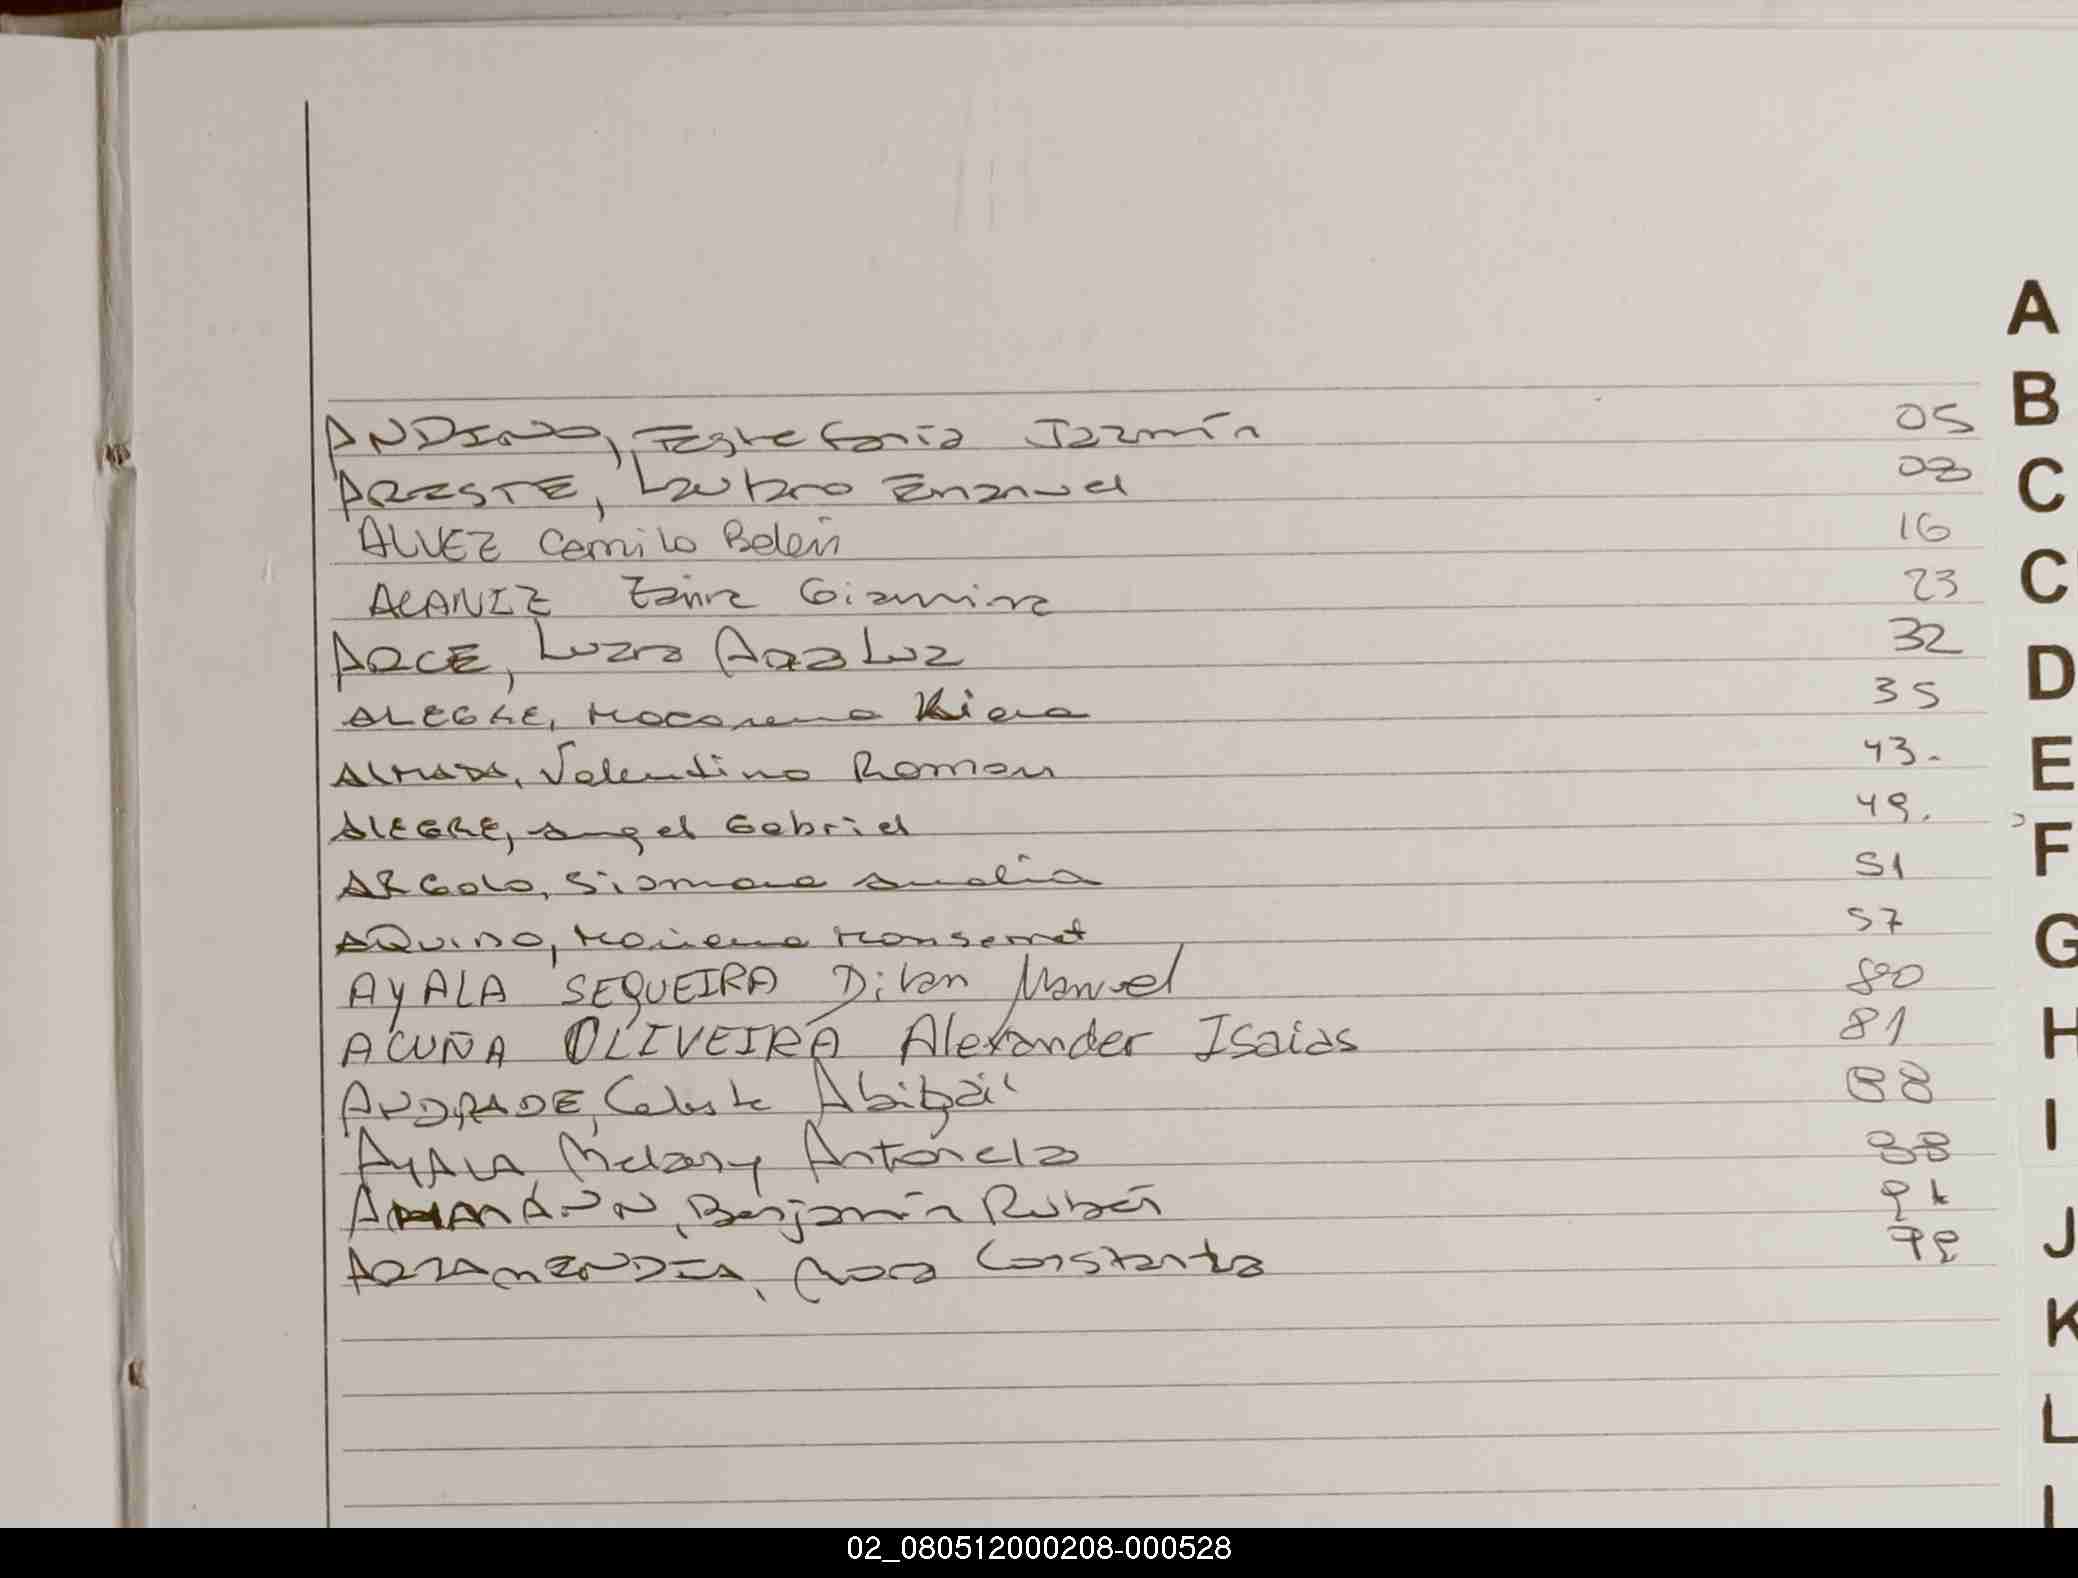 ANDINO, Estefanía Jazmín 05
ARESTE, Lautaro Emanuel 08
ALVEZ Camila Belén 16
ALANIZ Zaira Giannina 23
ARCE, Luz 32
ALEGRE, Macarena Kiara 35
ALMADA, Valentino Roman 43.
ALEGRE, Angel Gabriel 49.
ARGOLO, Siomara Analia 51
AQUINO, Morena Monserrat 57
AYALA SEQUEIRA Dilan Manuel 80
ACUÑA OLIVEIRA Alexander Isaias 81
ANDRADE, Celeste Abigail 88
AYALA, Melany Antonela
Benjamín Rubén
ARZAMENDIA, Mora Constanza
A
B
C
C
D
E
F
G
H
I
J
K
L
02_080512000208-000528